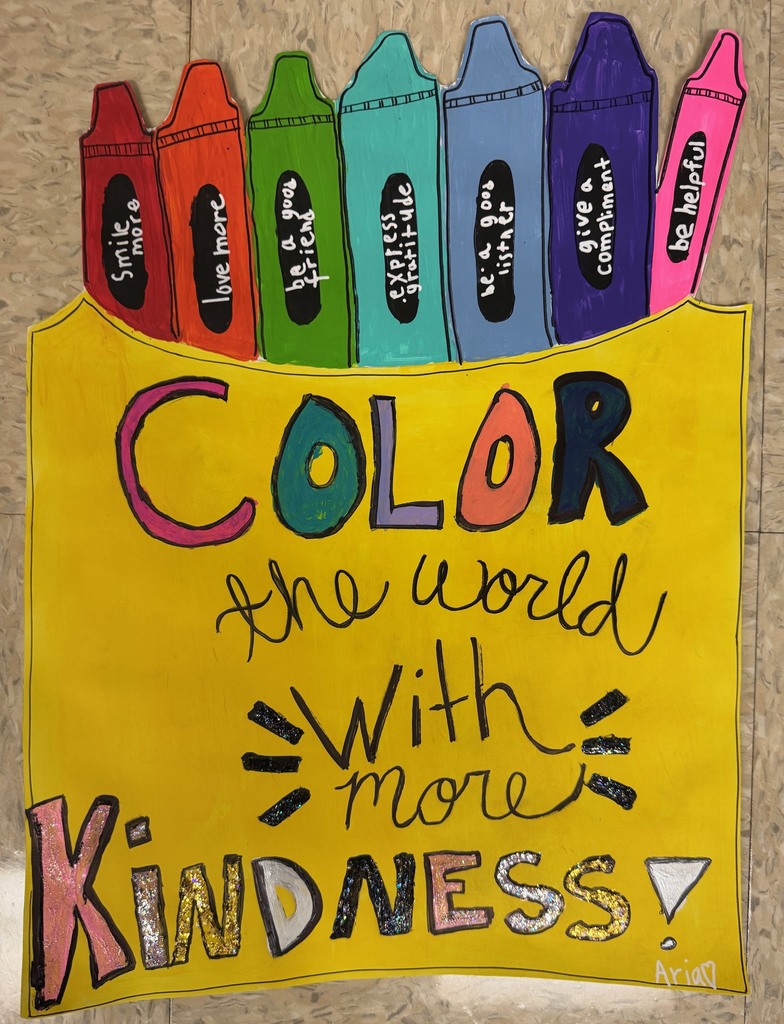 Smile
more
love more
be a good
friend
express
gratitude
be a good
listner
give a
compliment
be helpful
COLOR
the world
With
more
KiNDNESS!
Aria♡